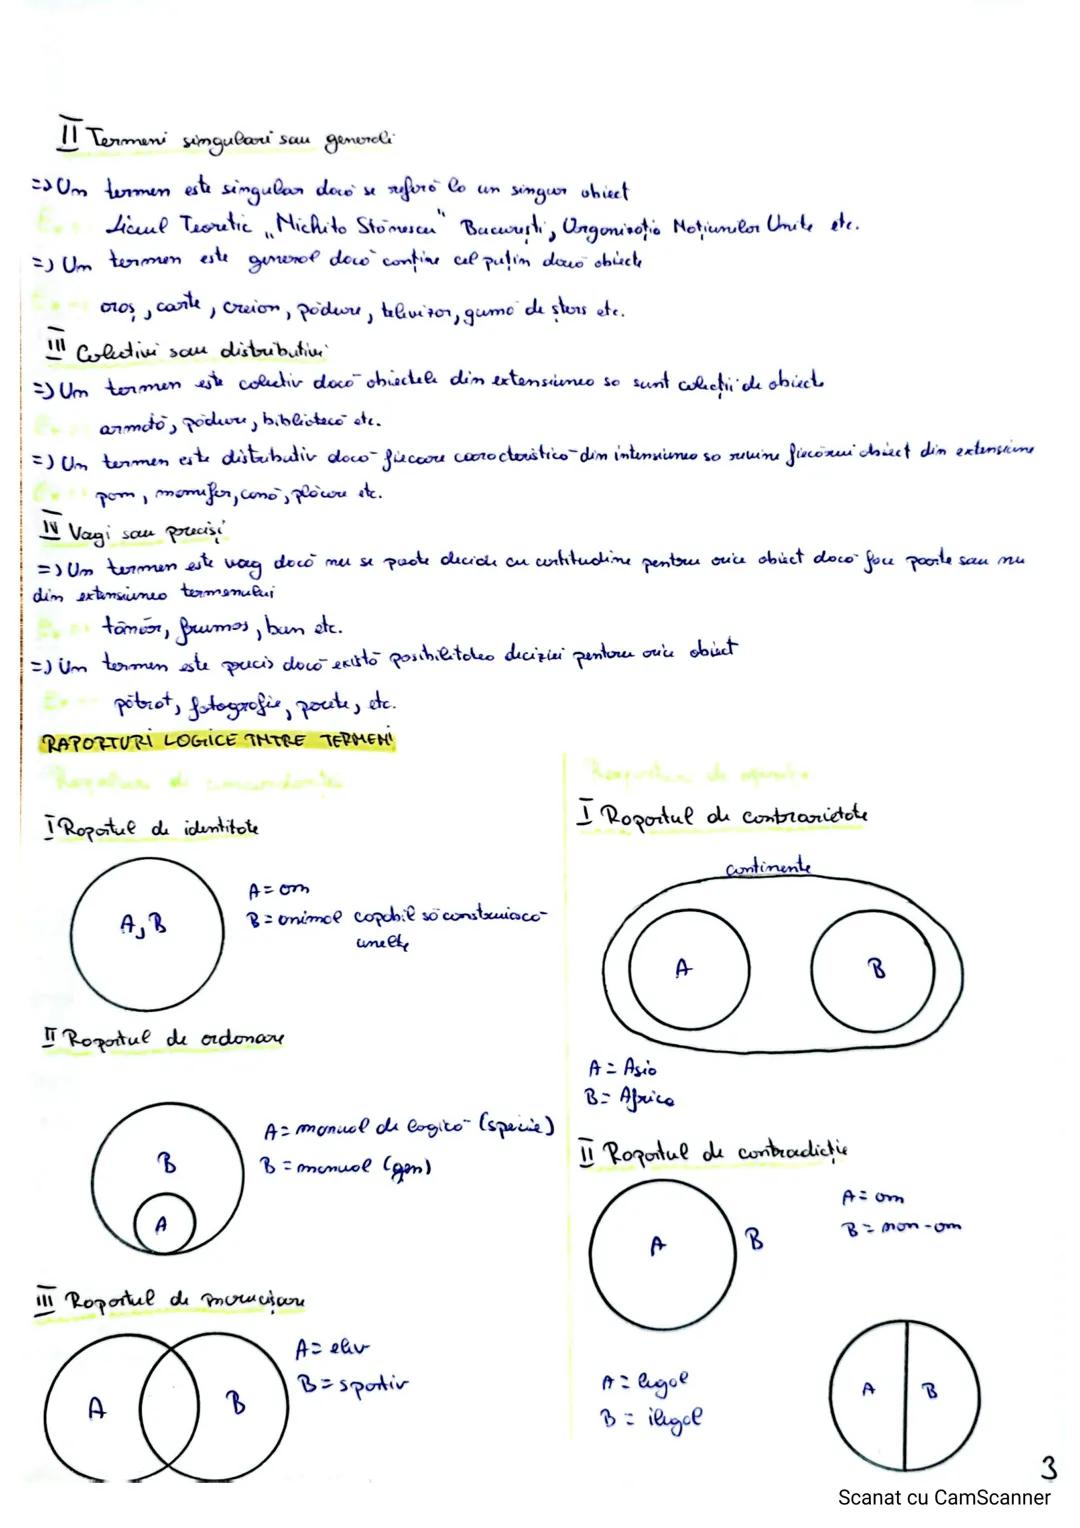 II Termeni singulari sau generali
=> Un termen este singular dacă se referă la un singur obiect
Ex: Liceul Teoretic „Nichita Stănescu" București, Organizația Națiunilor Unite etc.
=> Un termen este general dacă conține cel puțin două obiecte
oraș, carte, creion, pădure, televizor, gumă de șters etc.
III Colectivi sau distributivi
=> Un termen este colectiv dacă obiectele din extensiunea sa sunt colecții de obiecte
armată, pădure, bibliotecă etc.
=> Un termen este distributiv dacă fiecare caracteristică din intensiunea sa revine fiecărui obiect din extensiune
pom, mamifer, cană, plăcere etc.
IV Vagi sau preciși
=> Un termen este vag dacă nu se poate decide cu certitudine pentru orice obiect dacă face parte sau nu
din extensiunea termenului
tânăr, frumos, bun etc.
=> Un termen este precis dacă există posibilitatea deciziei pentru orice obiect
pătrat, fotografie, etc.
RAPORTURI LOGICE ÎNTRE TERMENI
Raporturi de concordanță
I Raportul de identitate
A, B
A = om
B = animal capabil să construiască
unelte
II Raportul de ordonare
B
A
A = manual de logică (specie)
B = manual (gen)
III Raportul de încrucișare
A
B
A = elev
B = sportiv
Raporturi de opoziție
I Raportul de contrarietate
continente
A
B
A = Asia
B = Africa
II Raportul de contradicție
A
B
A = om
B = non-om
A = legal
B = ilegal
A
B
3
Scanat cu CamScanner